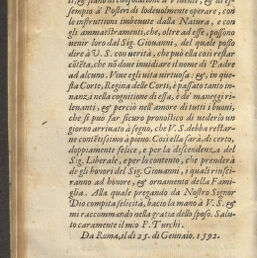 sempio à Posteri di lodevolmente operare, con
le instruttioni imbevute dalla Natura, e con
gli ammaestramenti, che, oltre ad esse, possono
venir loro dal Sig. Giovanni, del quale posso
dire à V.S. con verità, che può ella così restar
cõtẽta, che nõ dove invidiare il nome di Padre
ad alcuno. Vive egli vita virtuosa: &, in que-
sta Corte, Regina delle Corti, è passato tanto in-
nanzi nella cognitione di essa, è de' maneggi ri-
levanti, & perciò nell' amore di tutti i buoni,
che si può far sicuro pronostico di vederlo un
giorno arrivato à segno, che V.S. debba restar-
ne contẽtissimo à pieno. Così ella sarà, di certo,
doppiamente felice, e per la discendenza del
Sig. Liberale, e per lo contento, che prenderà
de gli honori del Sig. Giovanni, i quali riusci-
ranno ad honore, & ornamento della Fami-
glia. Alla quale pregando da Nostro Signor
Dio compita felicità, bacio la mano à V.S. &
mi raccommando nella gratia dello sposo. Salu-
to caramente il mio P. Turchi.
Da Roma, il dì 25. di Gennaio. 1592.